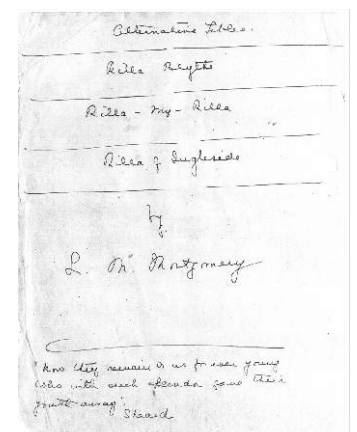 Alternative Titles.
Rilla Blythe
Rilla - My - Rilla
Rilla of Ingleside
by
L. M. Montgomery
"Now they remain to us forever young
Who with such splendor gave their
youth away".
Sheard